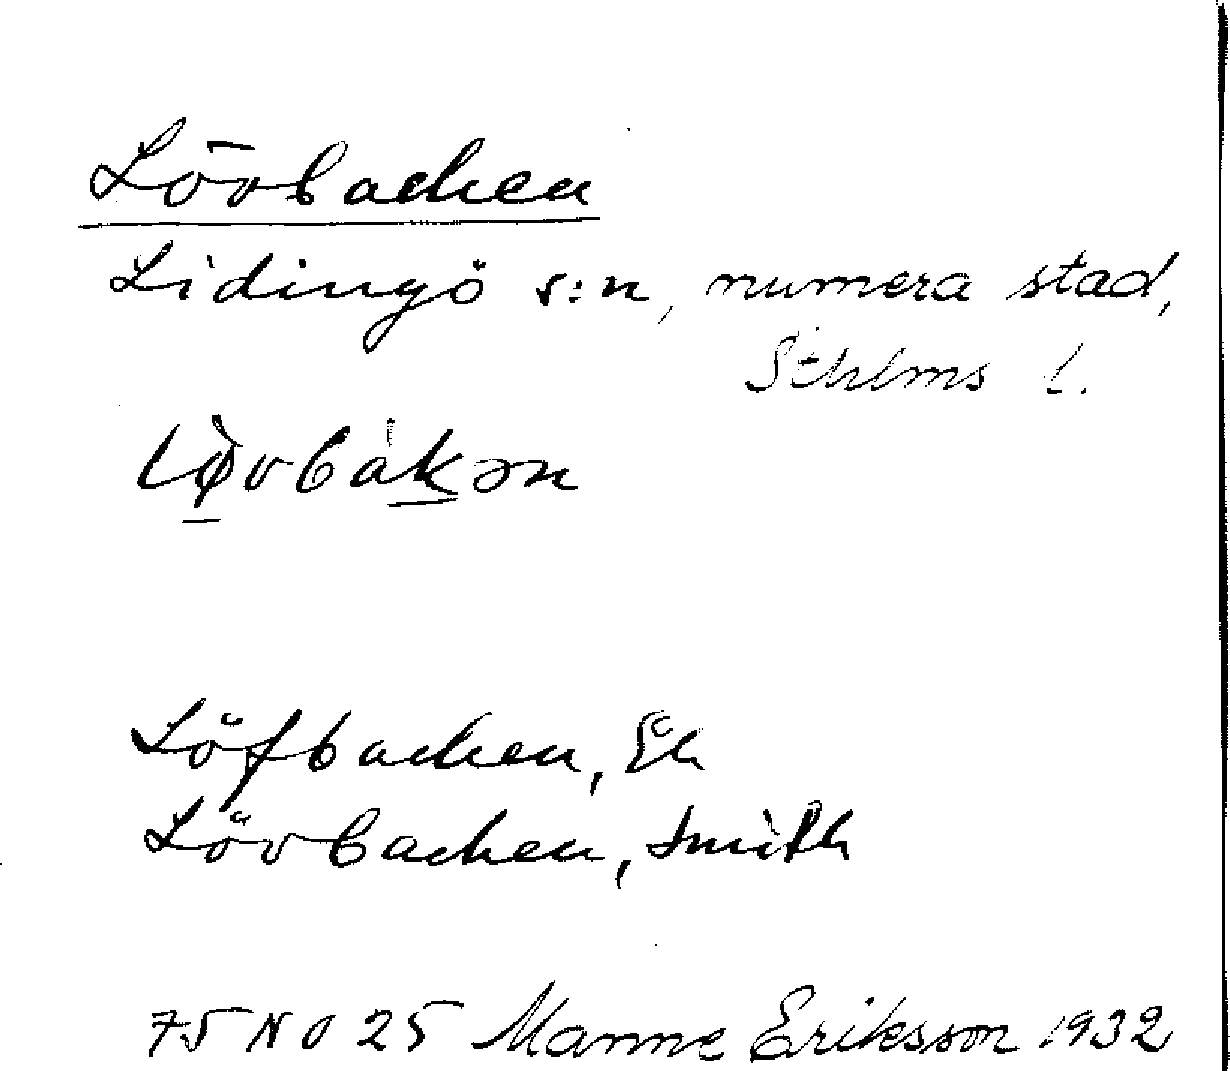 Lövbacken
Lidingö s:n, numera stad,
Sthlms l.
Løvbakən
Löfbacken, Ek
Lövbacken, Smith
75 NO 25 Manne Eriksson 1932